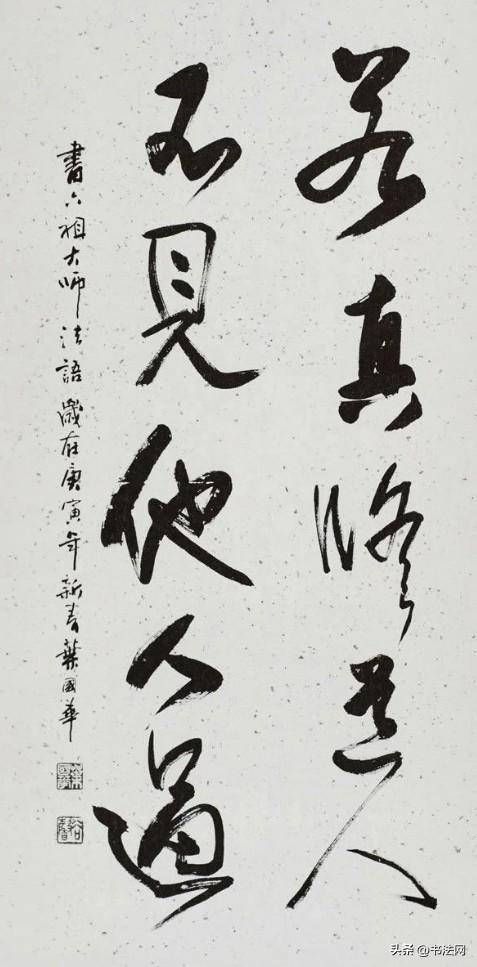 若真修道人
不見他人過
書六祖大师法語歲在庚寅年新春葉國華
头条 @书法网